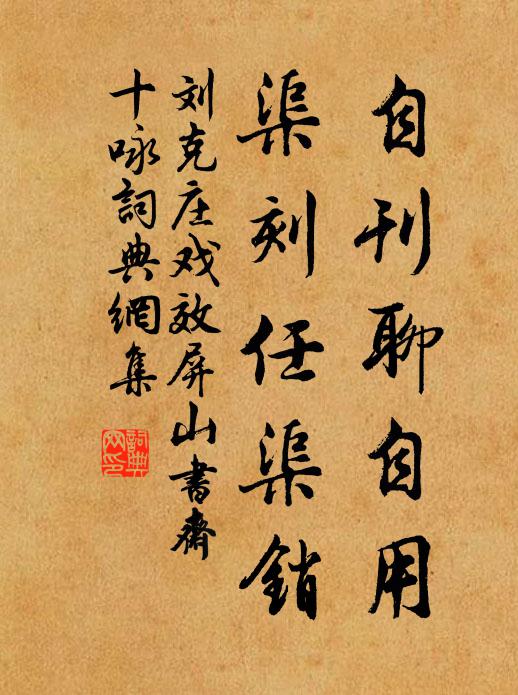 自刊聊自用
渠刻任渠銷
刘克庄戏效屏山书齋
十咏詞典網集
詞典网印